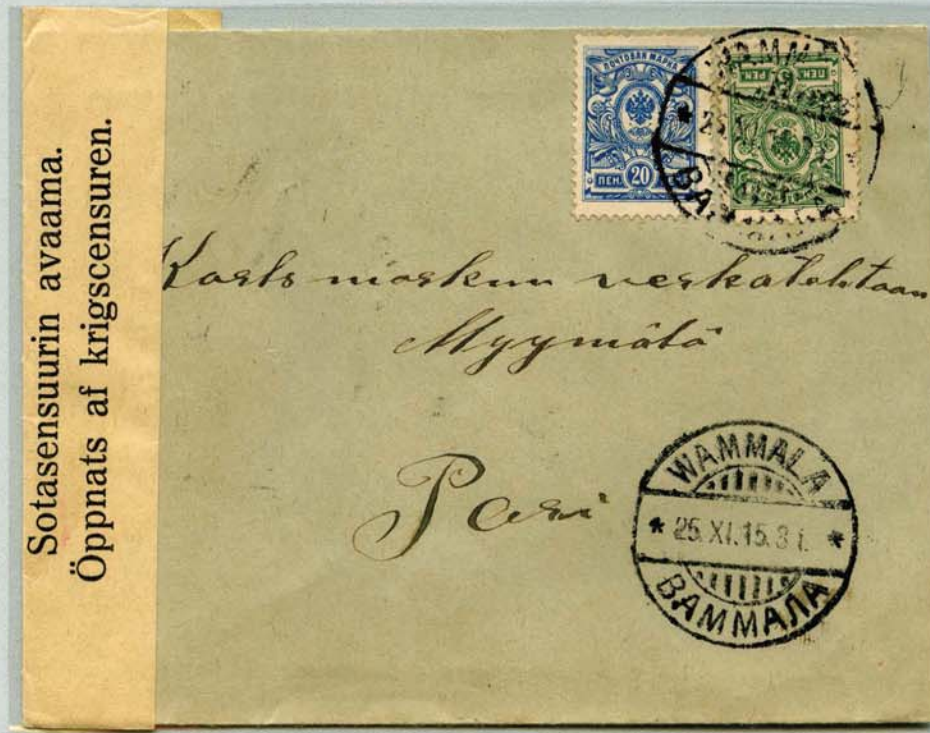 Sotasensuurin avaama.
Öppnats af krigscensuren.
ПОЧТОВАЯ МАРКА
ПЕН. 20
ПЕН. 5 PEN.
verkatehtaan
Myymälä
Pori
WAMMALA
25.XI.15. 3 i.
ВАММАЛА